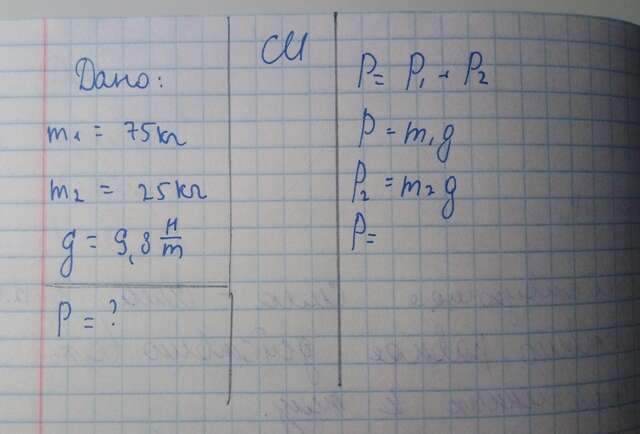 Дано:
m₁ = 75 кг
m₂ = 25 кг
g = 9,8 н/m
P = ?
СИ
P = P₁ + P₂
P = m₁g
P₂ = m₂g
P =